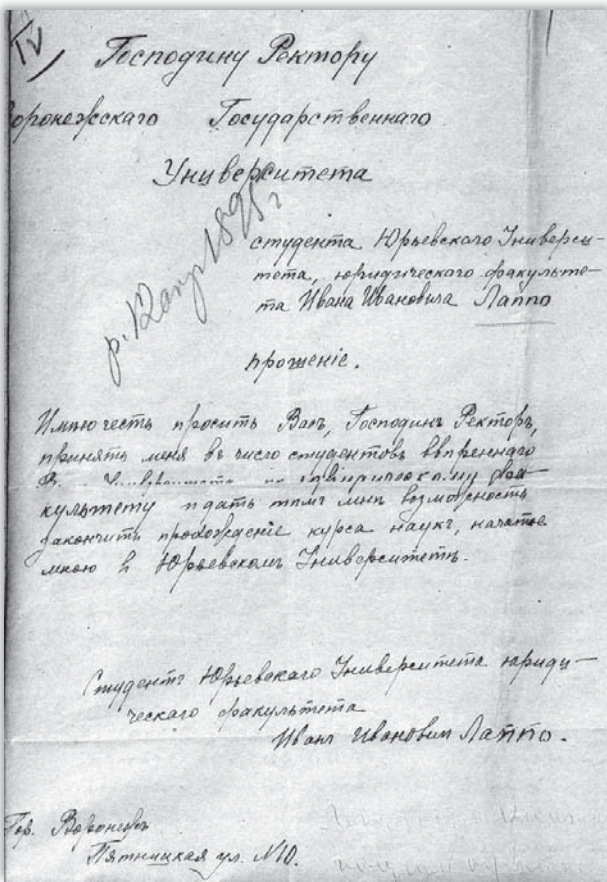 IV
Господину Ректору
Воронежскаго Государственнаго
Университета
р. 12 апр 1895 г
студента Юрьевскаго Универси-
тета, юридическаго факульте-
та Ивана Ивановича Лаппо
прошеніе.
Имѣю честь просить Васъ, Господинъ Ректоръ,
принять меня въ число студентовъ ввѣреннаго
Университета по юридическому фа-
культету и дать тѣмъ мнѣ возможность
закончить прохожденіе курса наукъ, начатое
мною въ Юрьевскомъ Университетѣ.
Студентъ Юрьевскаго Университета юриди-
ческаго факультета
Иванъ Ивановичъ Лаппо.
Гор. Воронежъ
Пятницкая ул. №10.